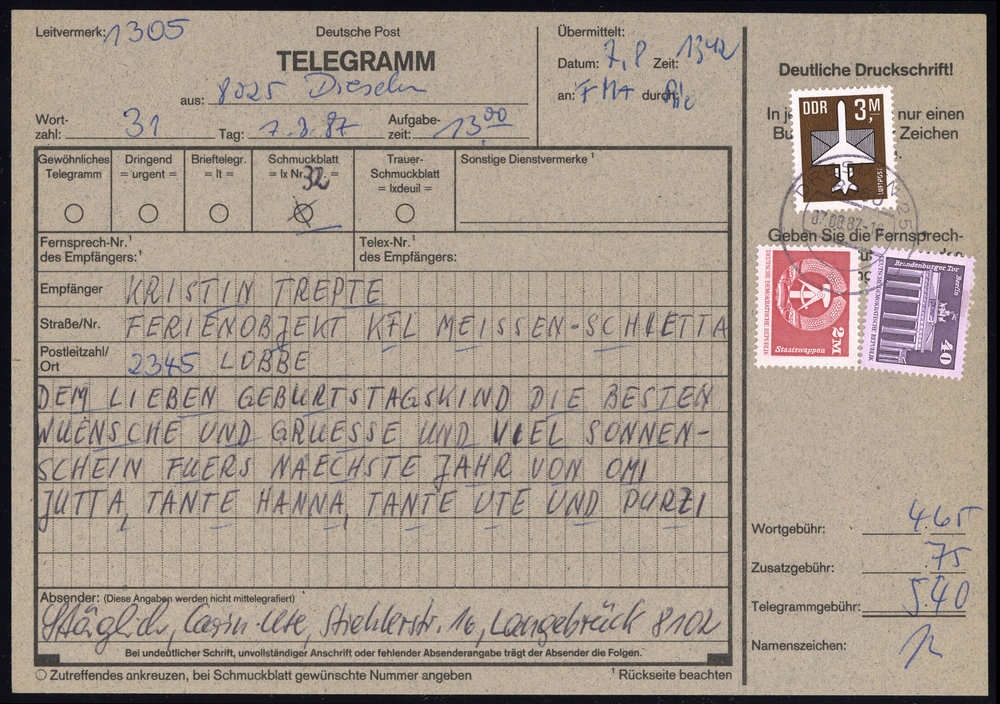 Leitvermerk: 1305
Deutsche Post
TELEGRAMM
aus: 8025 Dresden
Wort-
zahl: 31 Tag: 7.8.87 Aufgabe-
zeit: 13,00
Übermittelt:
Datum: 7,8 Zeit: 1342
an: durch:
Deutliche Druckschrift!
In nur einen
Bu Zeichen
Geben Sie die Fernsprech-
Gewöhnliches
Telegramm
Dringend
= urgent =
Brieftelegr.
= lt =
Schmuckblatt
= lx Nr. 32 =
Trauer-
Schmuckblatt
= lxdeuil =
Sonstige Dienstvermerke ¹
Fernsprech-Nr.¹
des Empfängers:¹
Telex-Nr.¹
des Empfängers:
Empfänger KRISTIN TREPTE
Straße/Nr. FERIENOBJEKT KFL MEISSEN-SCHLETTA
Postleitzahl/
Ort 2345 LOBBE
DEM LIEBEN GEBURTSTAGSKIND DIE BESTEN
WUENSCHE UND GRUESSE UND VIEL SONNEN-
SCHEIN FUERS NAECHSTE JAHR VON OMI
JUTTA, TANTE HANNA, TANTE UTE UND PURZI
Absender: (Diese Angaben werden nicht mittelegrafiert)
Stäglich, Carin-Ute, Stiehlerstr. 16, Langebrück 8102
Bei undeutlicher Schrift, unvollständiger Anschrift oder fehlender Absenderangabe trägt der Absender die Folgen.
Zutreffendes ankreuzen, bei Schmuckblatt gewünschte Nummer angeben
¹ Rückseite beachten
DDR 3,M
LUFTPOST
07.08.87
DEUTSCHE DEMOKRATISCHE REPUBLIK
Staatswappen
2M
Brandenburger Tor Berlin
DEUTSCHE DEMOKRATISCHE REPUBLIK
40
Wortgebühr: 4.65
Zusatzgebühr: 75
Telegrammgebühr: 5.40
Namenszeichen: